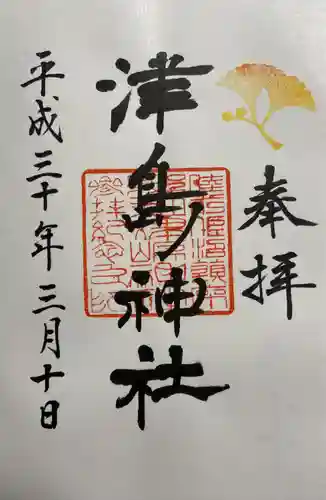 奉拝
津島神社
平成三十年三月十日